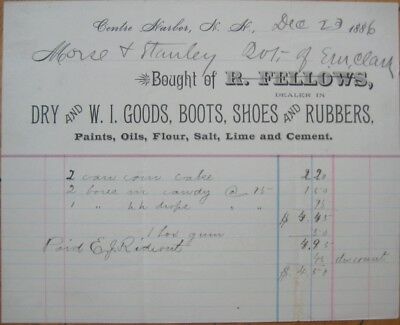 Centre Harbor, N. H., Dec 23 1886
Morse & Stanley Bot. of E.m. Clark
Bought of R. FELLOWS,
DEALER IN
DRY AND W. I. GOODS, BOOTS, SHOES AND RUBBERS,
Paints, Oils, Flour, Salt, Lime and Cement.
2 can corn cake 2 20
2 boxes m candy @ 75 1 50
1 " hh drops " " 75
$ 4.45
1 box gum 50
Paid E.J. Rideout 4.95
45 discount
$ 4 50